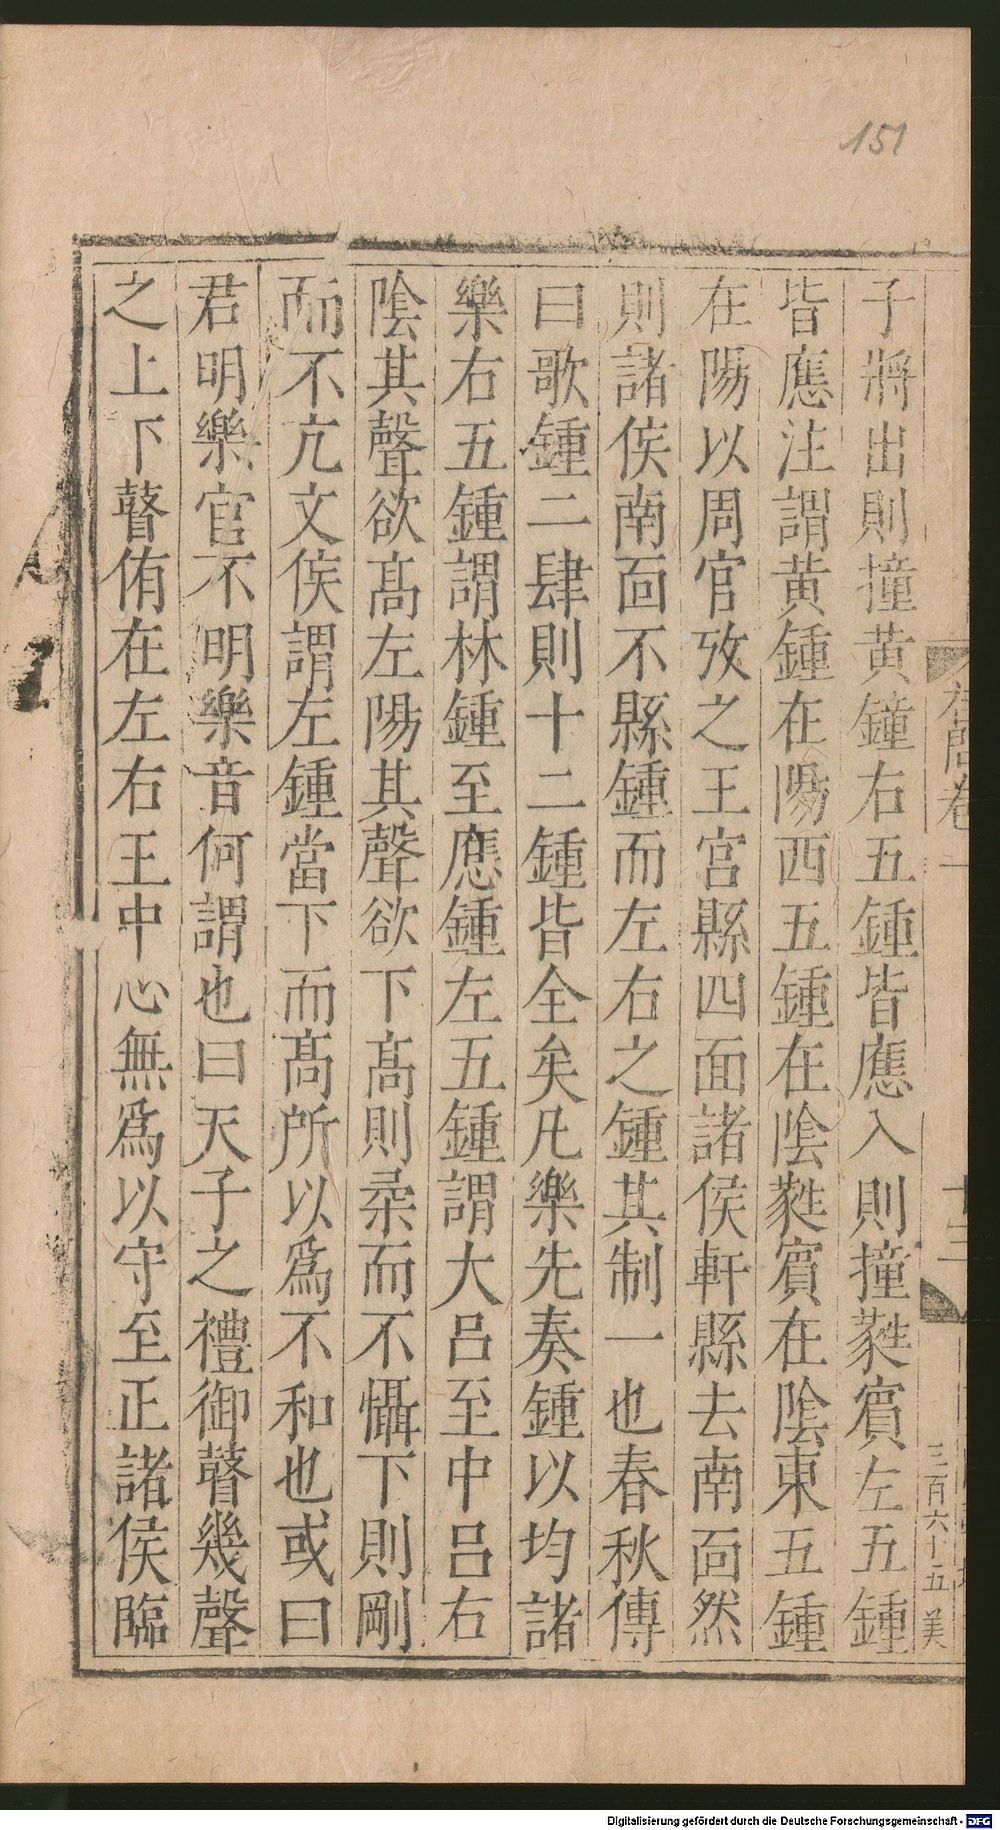 151
子將出則撞黄鐘右五鍾皆應入則撞蕤賓左五鍾
皆應注謂黄鍾在陽西五鍾在隂蕤賓在隂東五鍾
在陽以周官攷之王宮縣四面諸侯軒縣去南面然
則諸侯南面不縣鍾而左右之鍾其制一也春秋傳
曰歌鍾二肆則十二鍾皆全矣凡樂先奏鍾以均諸
樂右五鍾謂林鍾至應鍾左五鍾謂大吕至中吕右
隂其聲欲髙左陽其聲欲下髙則桒而不懾下則剛
而不亢文侯謂左鍾當下而髙所以爲不和也或曰
君明樂官不明樂音何謂也曰天子之禮御瞽幾聲
之上下瞽侑在左右王中心無爲以守至正諸侯臨
卷一
十三
三百六十五 美
Digitalisierung gefördert durch die Deutsche Forschungsgemeinschaft - DFG